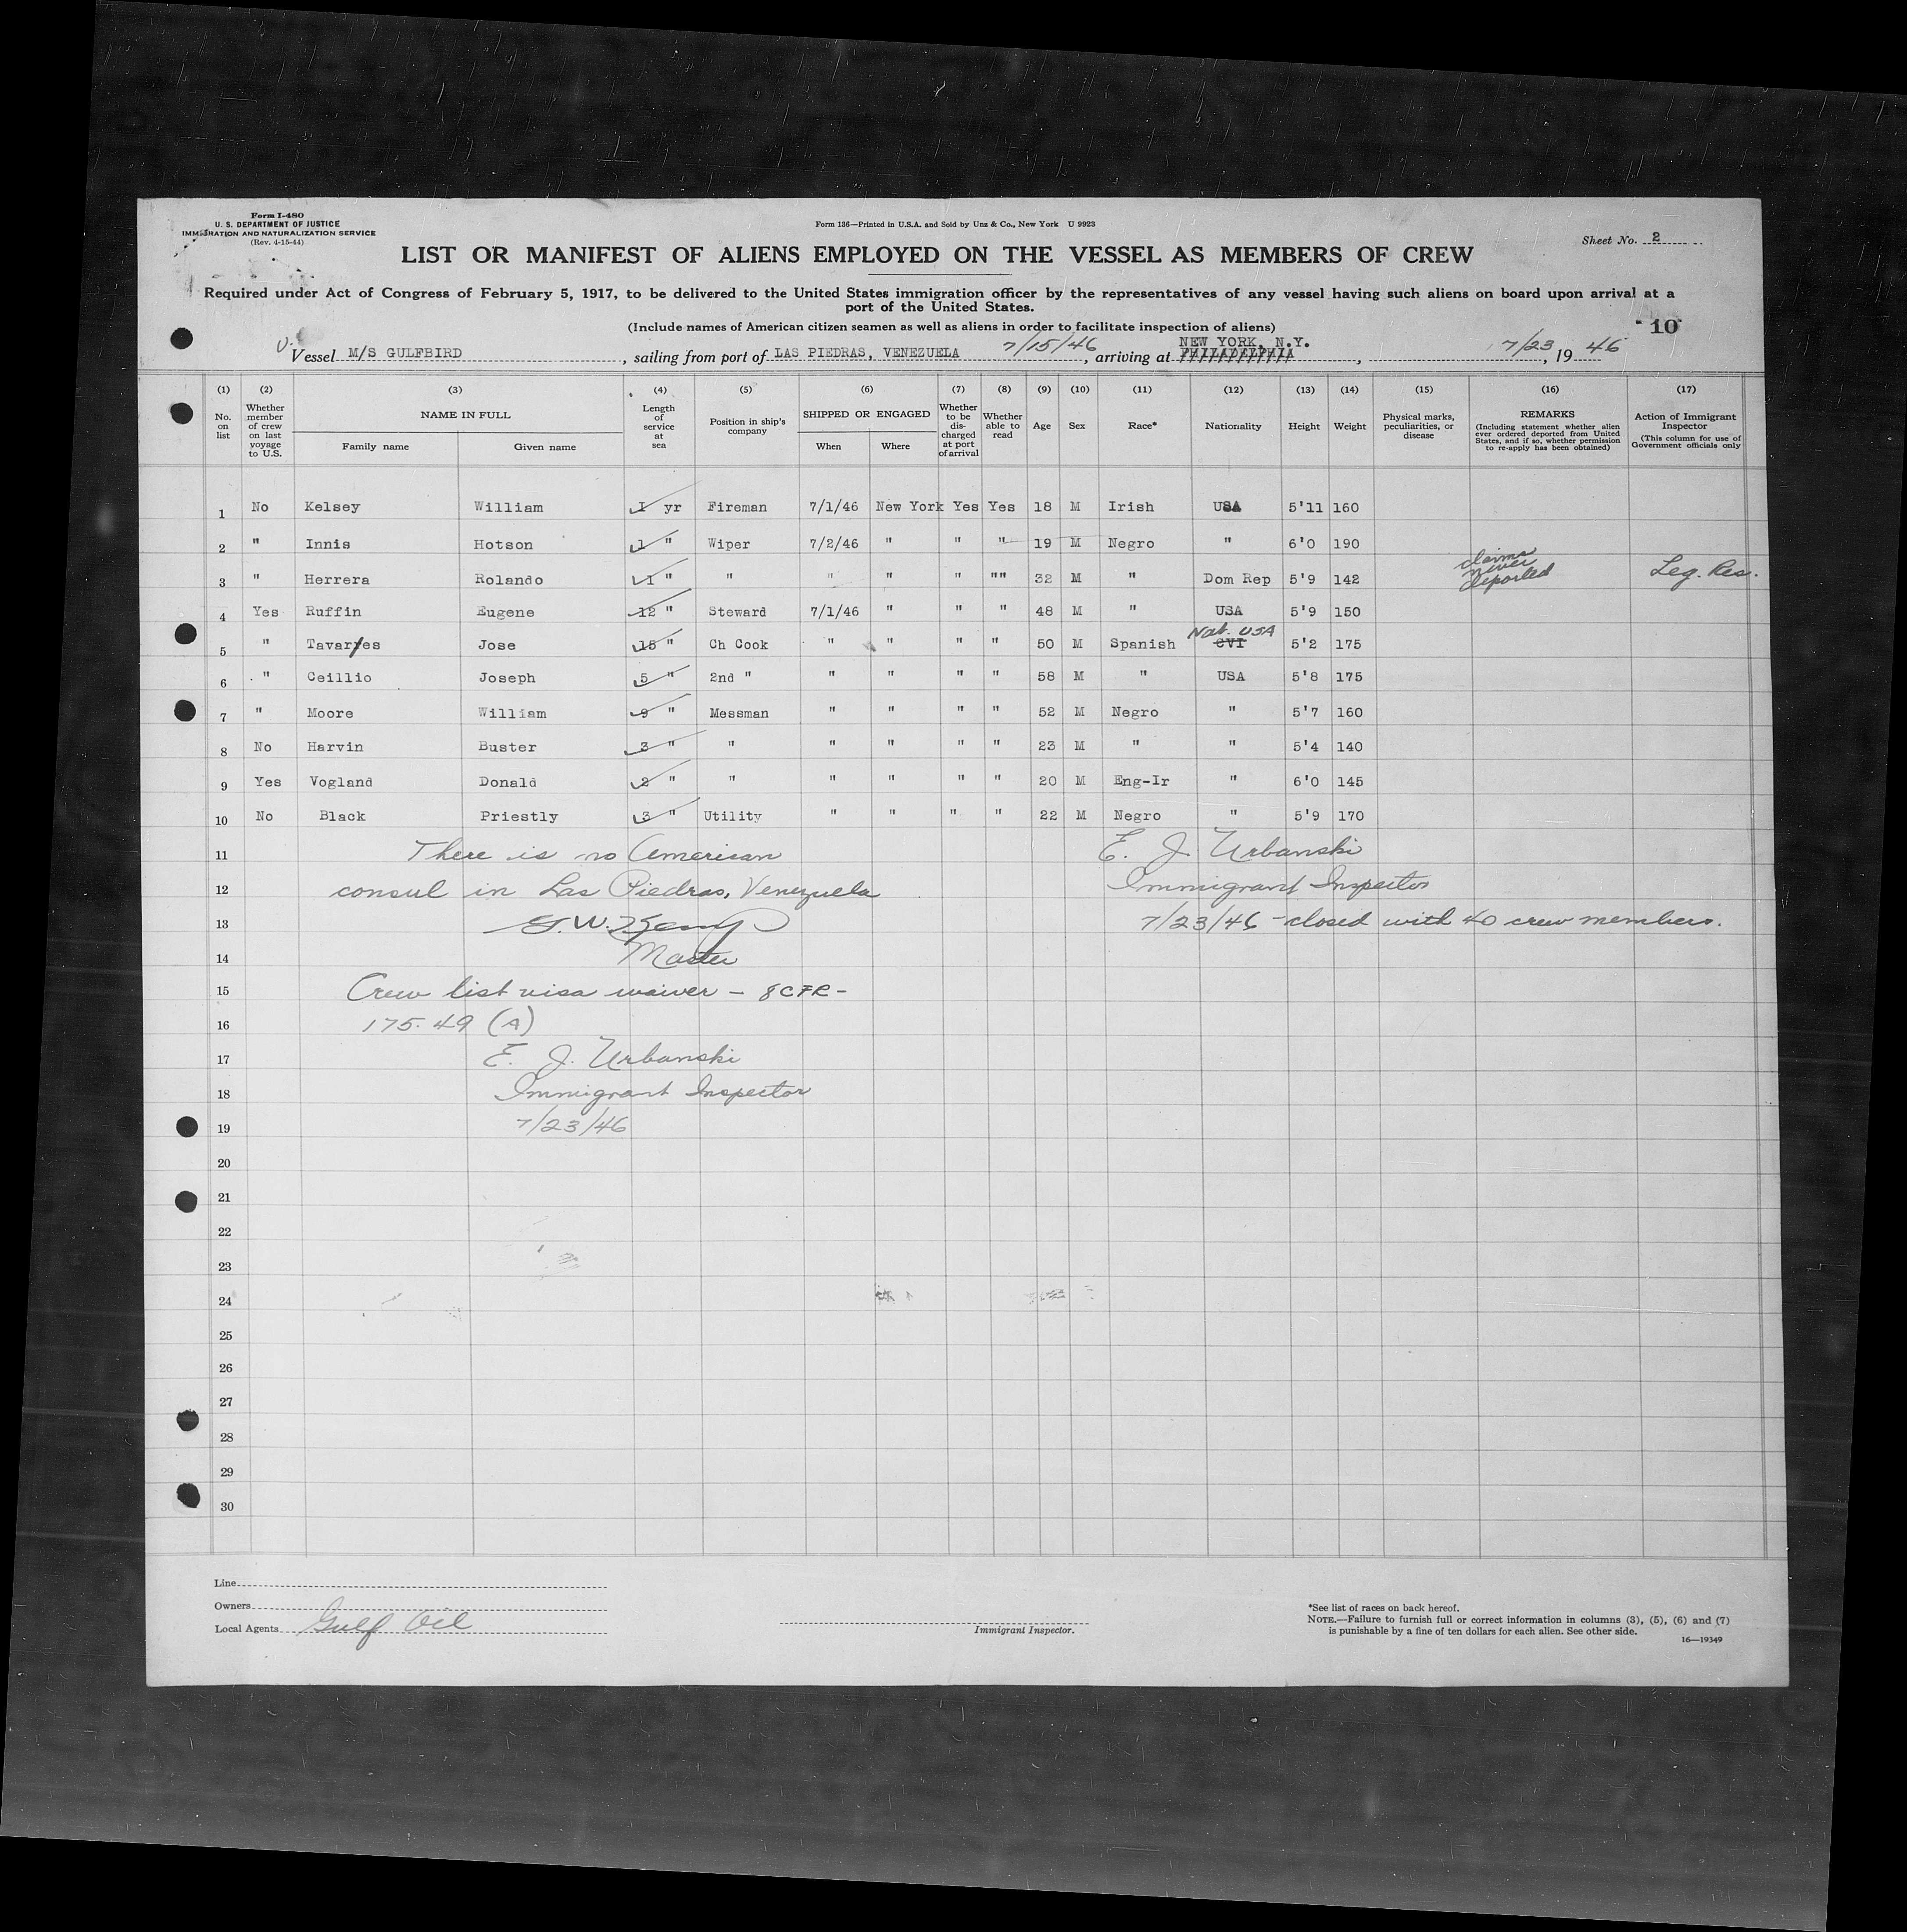 Form I-480
U. S. DEPARTMENT OF JUSTICE
IMMIGRATION AND NATURALIZATION SERVICE
(Rev. 4-15-44)
Form 136—Printed in U.S.A. and Sold by Unz & Co., New York U 9923
Sheet No. 2
LIST OR MANIFEST OF ALIENS EMPLOYED ON THE VESSEL AS MEMBERS OF CREW
Required under Act of Congress of February 5, 1917, to be delivered to the United States immigration officer by the representatives of any vessel having such aliens on board upon arrival at a
port of the United States.
(Include names of American citizen seamen as well as aliens in order to facilitate inspection of aliens)
10
Vessel M/S GULFBIRD, sailing from port of LAS PIEDRAS, VENEZUELA 7/15/46, arriving at NEW YORK, N.Y. PHILADELPHIA, 7/23, 19 46
(1) (2) (3) (4) (5) (6) (7) (8) (9) (10) (11) (12) (13) (14) (15) (16) (17)
No. on list
Whether member of crew on last voyage to U.S.
NAME IN FULL
Family name
Given name
Length of service at sea
Position in ship's company
SHIPPED OR ENGAGED
When
Where
Whether to be discharged at port of arrival
Whether able to read
Age
Sex
Race*
Nationality
Height
Weight
Physical marks, peculiarities, or disease
REMARKS
(Including statement whether alien ever ordered deported from United States, and if so, whether permission to re-apply has been obtained)
Action of Immigrant Inspector
(This column for use of Government officials only
1 No Kelsey William 1 yr Fireman 7/1/46 New York Yes Yes 18 M Irish USA 5'11 160
2 " Innis Hotson 1 " Wiper 7/2/46 " " " 19 M Negro " 6'0 190
3 " Herrera Rolando 1 " " " " " "" 32 M " Dom Rep 5'9 142 claims never deported Leg. Res.
4 Yes Ruffin Eugene 12 " Steward 7/1/46 " " " 48 M " USA 5'9 150
5 " Tavarres Jose 15 " Ch Cook " " " " 50 M Spanish Nat. USA CVI 5'2 175
6 " Ceillio Joseph 5 " 2nd " " " " " 58 M " USA 5'8 175
7 " Moore William 9 " Messman " " " " 52 M Negro " 5'7 160
8 No Harvin Buster 3 " " " " " " 23 M " " 5'4 140
9 Yes Vogland Donald 2 " " " " " " 20 M Eng-Ir " 6'0 145
10 No Black Priestly 3 " Utility " " " " 22 M Negro " 5'9 170
11 There is no American E. J. Urbanski
12 consul in Las Piedras, Venezuela Immigrant Inspector
13 7/23/46 - closed with 40 crew members.
14 Master
15 Crew list visa waiver - 8 CFR -
16 175.49 (A)
17 E. J. Urbanski
18 Immigrant Inspector
19 7/23/46
20
21
22
23
24
25
26
27
28
29
30
Line
Owners
Local Agents Gulf Oil
Immigrant Inspector.
*See list of races on back hereof.
NOTE.—Failure to furnish full or correct information in columns (3), (5), (6) and (7)
is punishable by a fine of ten dollars for each alien. See other side.
16—19349